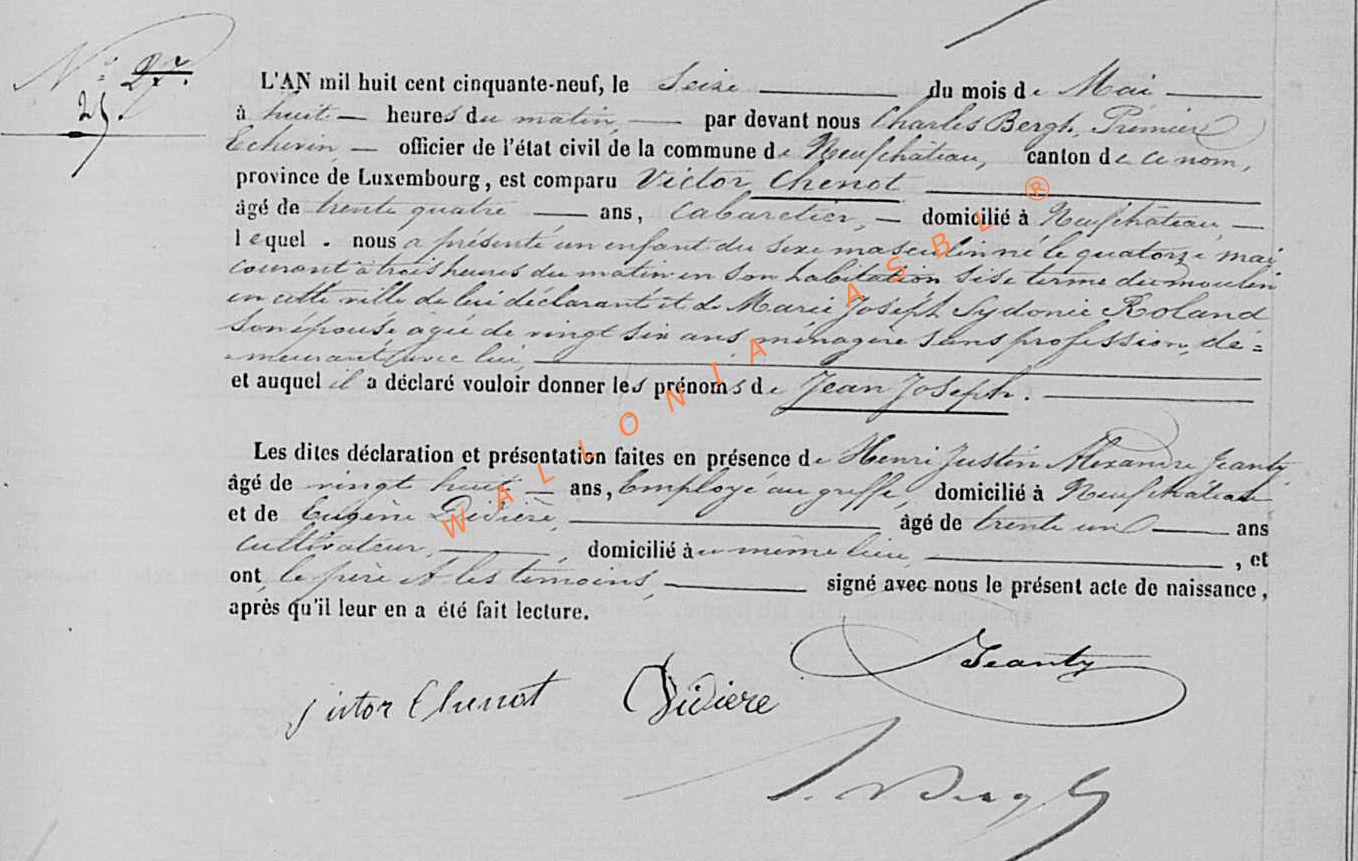 N° 27.
25
L'AN mil huit cent cinquante-neuf, le Seize du mois de Mai
à huit heures du matin, par devant nous Charles Bergh, Premier
Echevin, officier de l'état civil de la commune de Neufchâteau, canton de ce nom,
province de Luxembourg, est comparu Victor Chenot
âgé de trente quatre ans, Cabaretier, domicilié à Neufchâteau,
lequel nous a présenté un enfant du sexe masculin né le quatorze mai
courant à trois heures du matin en son habitation sise terme du moulin
en cette ville de lui déclarant et de Marie Joseph Sydonie Roland
son épouse agée de vingt six ans, ménagère sans profession, dé=
=meurant avec lui,
et auquel il a déclaré vouloir donner les prénoms de Jean Joseph.
Les dites déclaration et présentation faites en présence de Henri Justin Alexandre Jeanty
âgé de vingt huit ans, Employé au greffe, domicilié à Neufchâteau
et de Eugène Didière, âgé de trente un ans
cultivateur, domicilié à u même lieu, , et
ont, le père et les témoins, signé avec nous le présent acte de naissance,
après qu'il leur en a été fait lecture.
Jeanty
Victor Chenot Didière
Bergh
WALLONIA ASBL ®